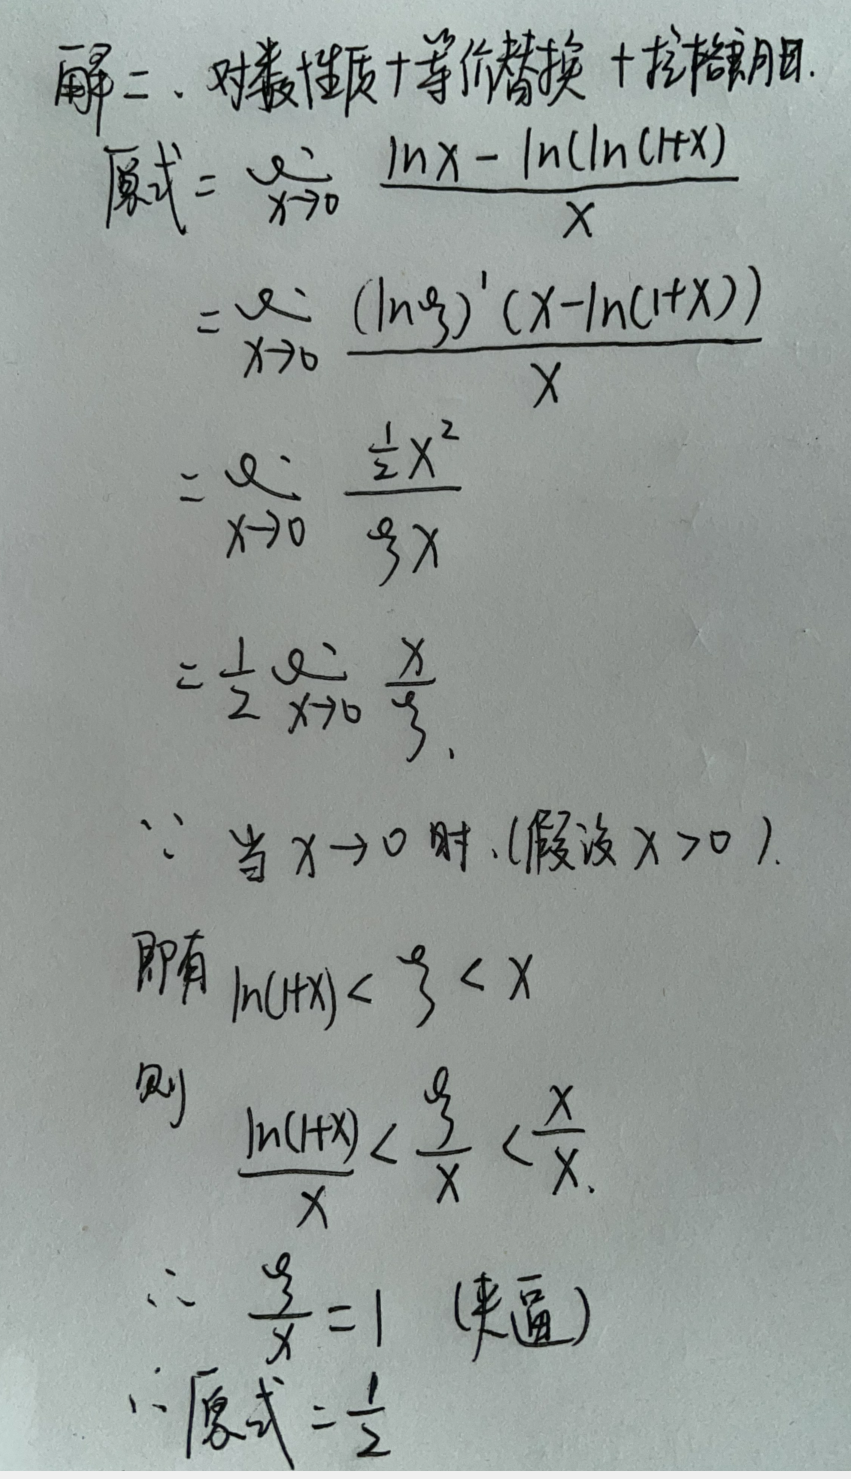 解二、对数性质+等价替换+拉格朗日.
原式 = lim x→0 (ln x - ln(ln(1+x)) / x
= lim x→0 (lnξ)'(x-ln(1+x)) / x
= lim x→0 ½x² / ξx
= 1/2 lim x→0 x/ξ.
∵ 当 x→0 时、(假设 x>0).
即有 ln(1+x) < ξ < x
则 ln(1+x)/x < ξ/x < x/x.
∴ ξ/x = 1 (夹逼)
∴ 原式 = 1/2